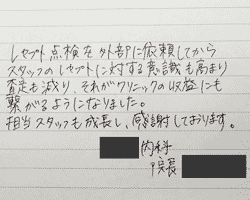 レセプト点検を外部に依頼してから
スタッフのレセプトに対する意識も高まり
査定も減り、それがクリニックの収益にも
繋がるようになりました。
担当スタッフも成長し、感謝しております。
内科
院長